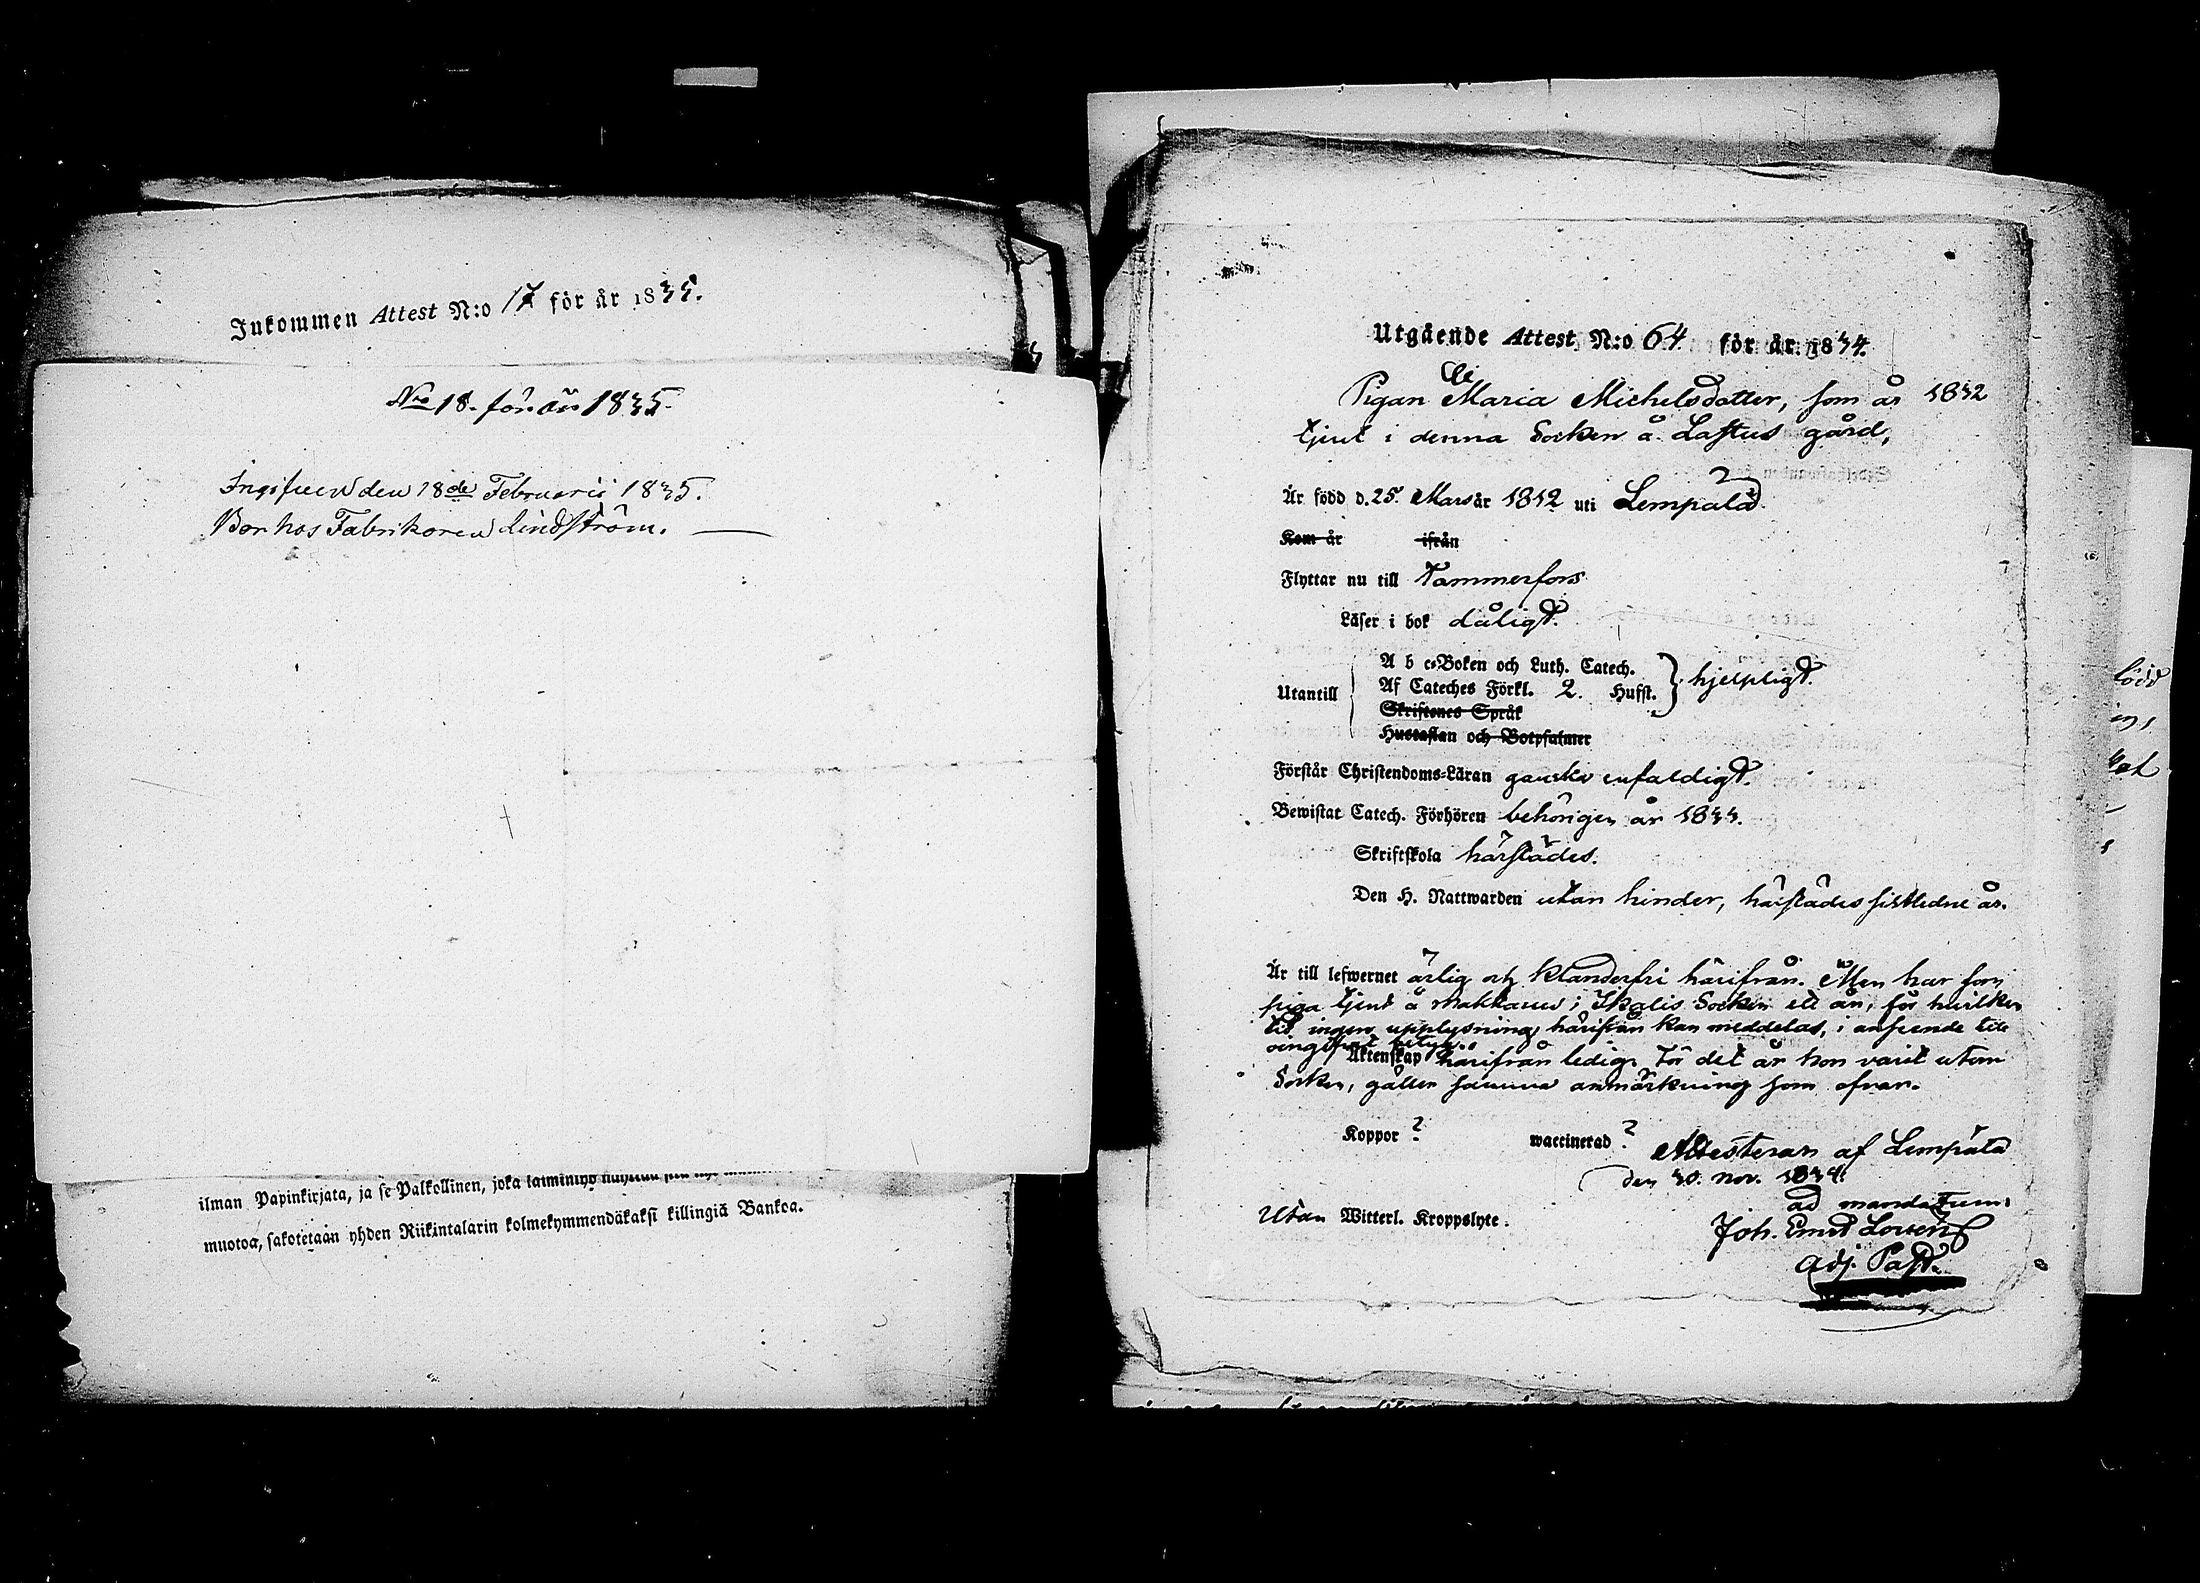 Inkommen Attest N:o 17 för år 1835.
Nro 18. för år 1835.
den 18de Februarii 1835.
Bor hos Fabrikoren Lindström.
ilman Papinkirjata, ja se Palkollinen, joka
muotoa, sakotetaan yhden Riikintalarin kolmekymmendäkaksi killingiä Bankoa.
Utgående Attest N:o 64 för år 1834.
Pigan Maria Michelsdotter, som år 1832
tjent i denna Socken å Lastus gård,
Är född d. 25. Mars år 1812 uti Lempälä.
Kom år ifrån
Flyttar nu till Tammerfors
Läser i bok dåligt.
A b c-Boken och Luth. Catech.
Utantill Af Cateches Förkl. 2. Hufst. hjelpligt.
Skriftenes Språk
Hustaflan och Botpsalmer
Förstår Christendoms-Läran ganska enfaldigt.
Bewistat Catech. Förhören behörigen år 1833.
Skriftskola härstädes.
Den H. Nattwarden utan hinder, härstädes sistledne år.
Är till lefwernet ärlig och klanderfri härifrån. Men har som
piga tjent å i Ikalis Socken ett år, för hvilken
tid ingen upplysning härifrån kan meddelas, i anseende till
Äktenskap härifrån ledig. För det år hon varit utom
Socken, gäller samma anmärkning som ofvan.
Koppor ? waccinerad ?
Attesteras af Lempälä
den 30. Nov. 1834.
ad mandatum
Utan Witterl. Kroppslyte.
Joh. Ernst
Adj. Past.
lödd